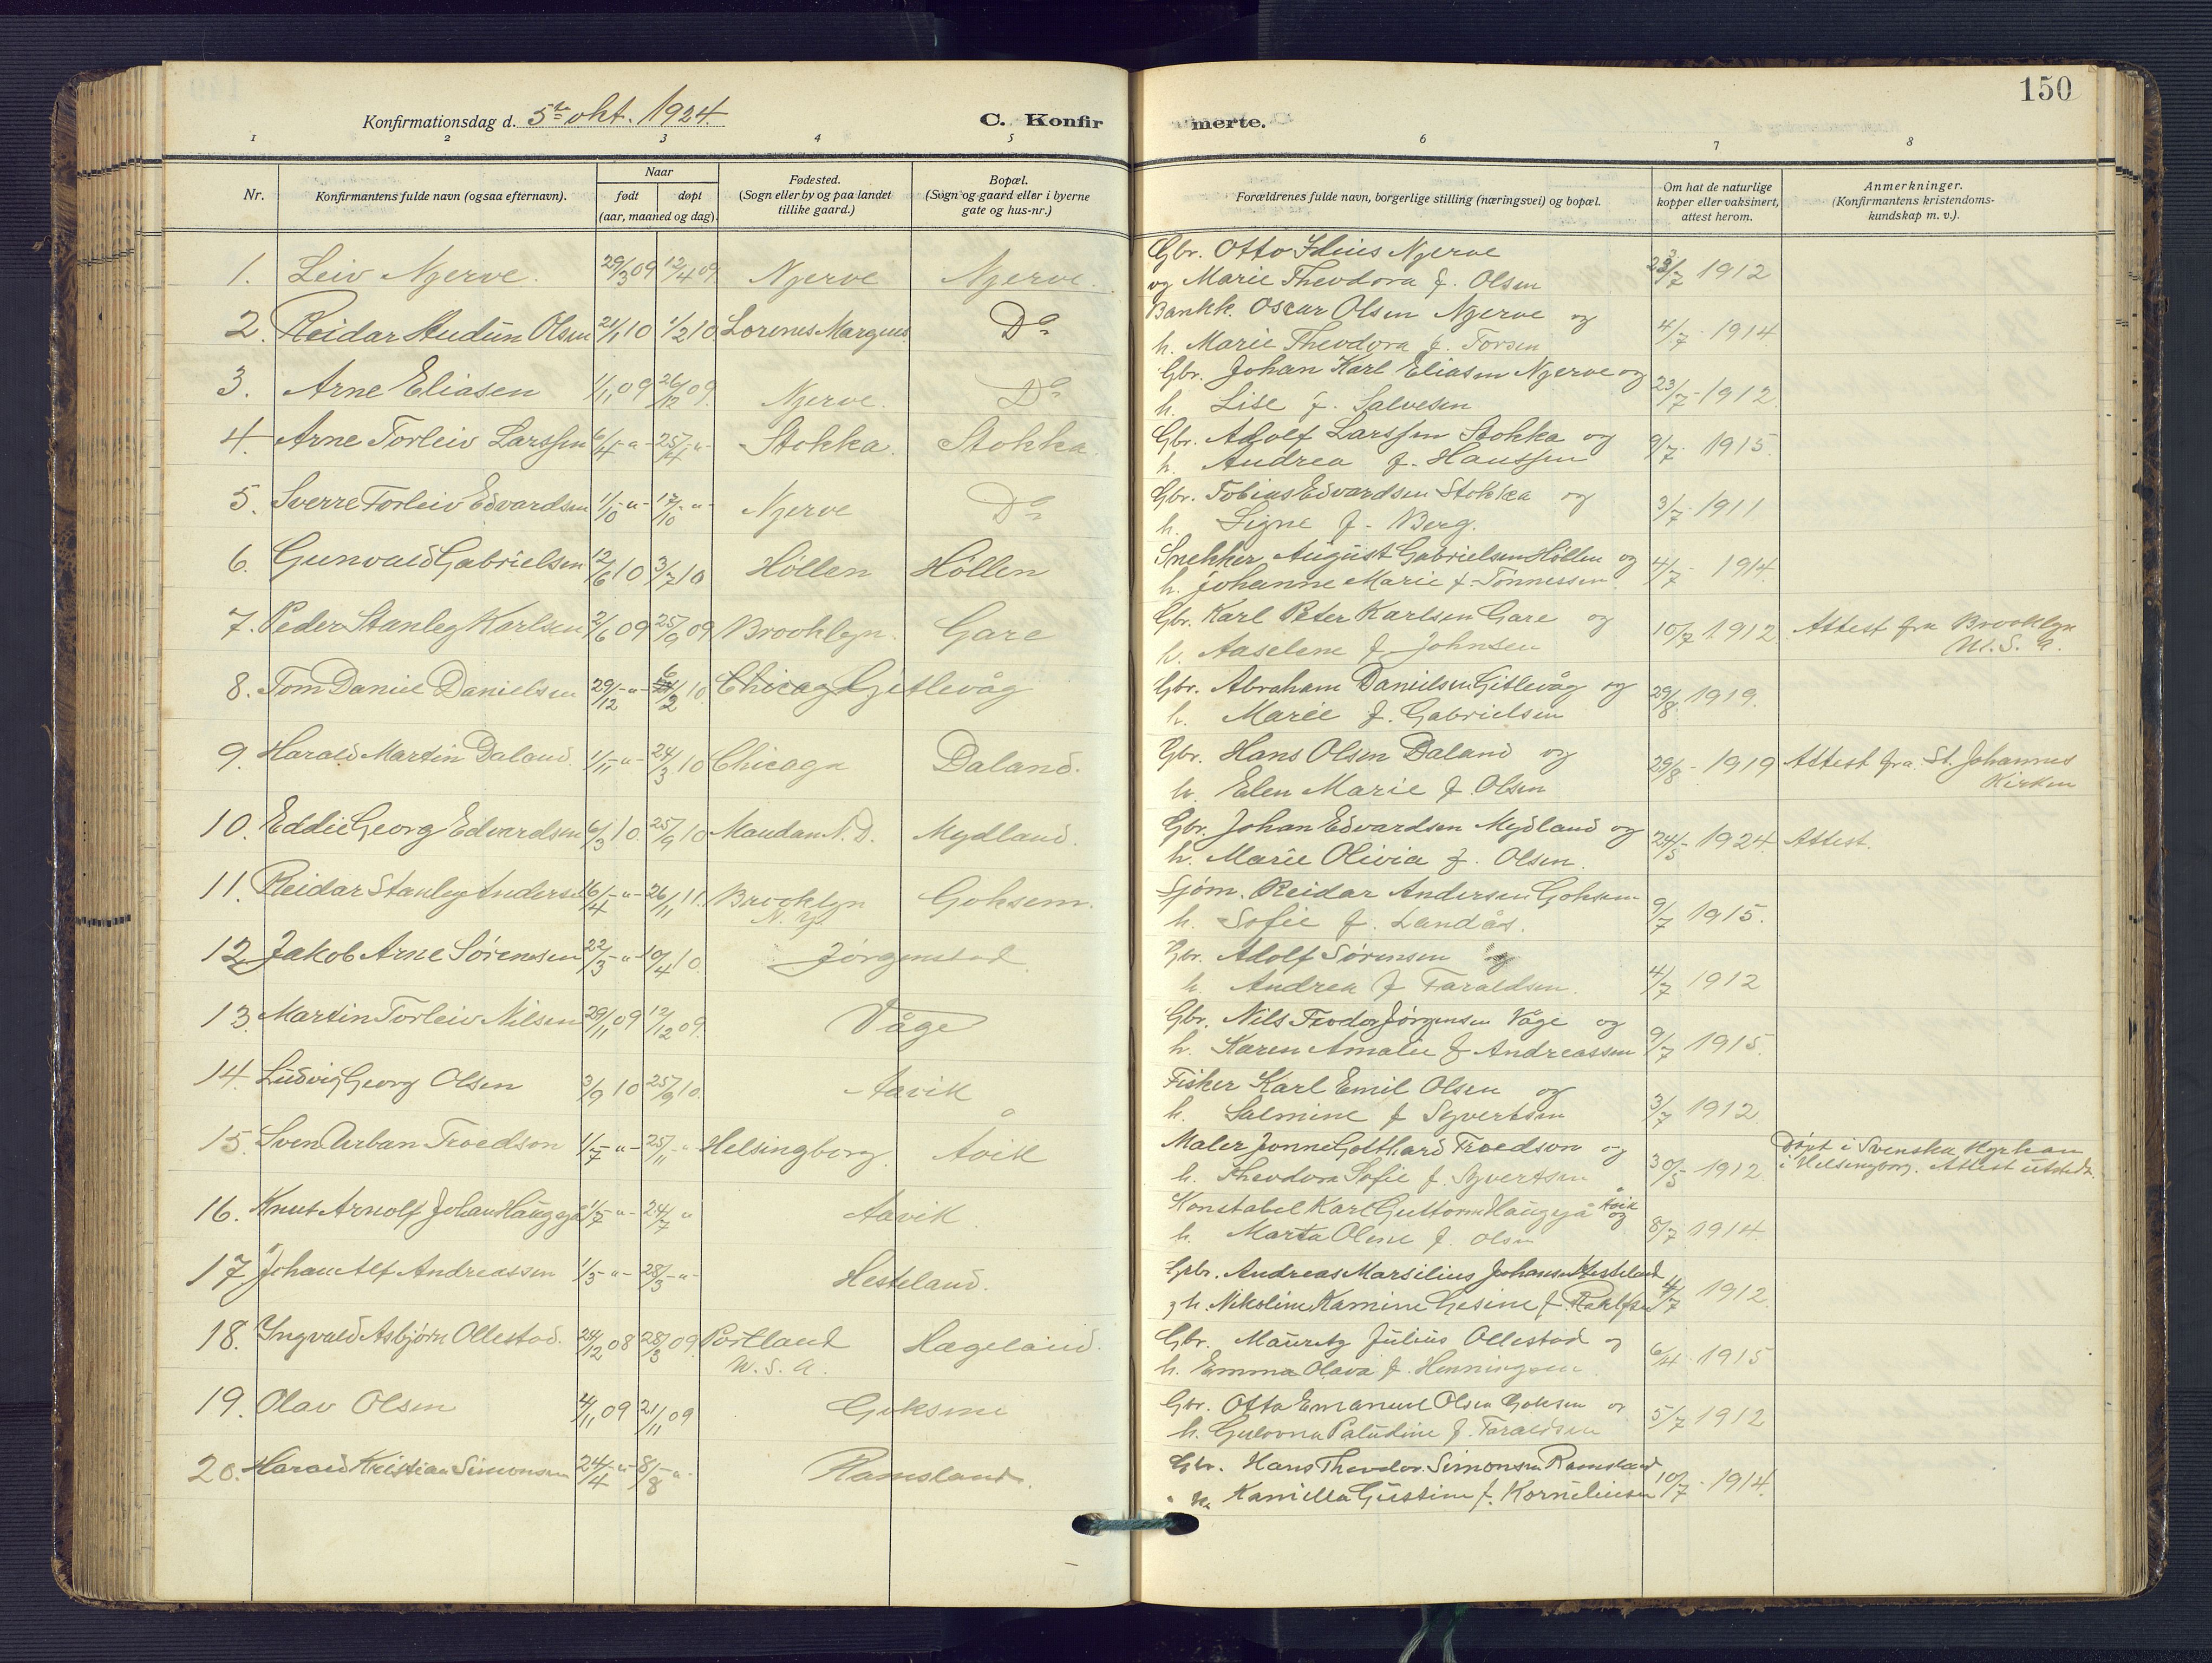 150
Konfirmationsdag d. 5te okt. 1924.
C. Konfirmerte.
1 2 3 4 5 6 7 8
Nr.
Konfirmantens fulde navn (ogsaa efternavn).
Naar
født døpt
(aar, maaned og dag).
Fødested.
(Sogn eller by og paa landet
tillike gaard.)
Bopæl.
(Sogn og gaard eller i byerne
gate og hus-nr.)
Forældrenes fulde navn, borgerlige stilling (næringsvei) og bopæl.
Om hat de naturlige
kopper eller vaksinert,
attest herom.
Anmerkninger.
(Konfirmantens kristendoms-
kundskap m. v.).
Gbr. Otto Njerve
1. Leiv Njerve. 29/3 09 12/4 09. Njerve Njerve. 23/7 1912
og Marie Theodora f. Olsen
Bankk. Oscar Olsen Njerve og
2. Reidar Olsen 21/1 10 1/2 10 Lorenes Marques. Do 4/7 - 1914.
h. Marie Theodora f. Torsen
Gbr. Johan Karl Eliasen Njerve og
3. Arne Eliasen 1/11 09 26/12 09. Njerve. Do 23/7 - 1912.
h. Lise f. Salvesen
Gbr. Adolf Larssen Stokka og
4. Arne Torleiv Larssen 6/4 -"- 25/4 -"- Stokka. Stokka. 9/7 1915.
h. Andrea f. Hanssen
Gbr. Tobias Edvardsen Stokka og
5. Sverre Torleiv Edvardsen 1/10 -"- 17/10 -"- Njerve Do 3/7 - 1911
h. Signe f. Berg.
Snekker August Gabrielsen Høllen og
6. Gunvald Gabrielsen 12/6 10 3/7 10 Høllen Høllen 4/7 - 1914.
h. Johanne Marie f. Tønnessen
Gbr. Karl Peter Karlsen Gare og
7. Peder Stanley Karlsen 2/6 09 25/9 09 Brooklyn. Gare 10/7 1912. Attest fra Brooklyn
h. Aaselene f. Johnsen U. S. A.
Gbr. Abraham Danielsen Gitlevåg og
8. Tom Daniel Danielsen 29/12 -"- 6/2 10. Chicag Gjitlevåg 29/8 1919.
h. Marie f. Gabrielsen
Gbr. Hans Olsen Daland og
9. Harald Martin Daland. 1/11 -"- 24/3 10 Chicago Daland. 29/8 - 1919 Attest fra St. Johannes
h. Elen Marie f. Olsen Kirken
Gbr. Johan Edvardsen Mydland og
10. Eddie Georg Edvardsen 6/3 10. 25/9 10 Mandan N. D. Mydland. 24/5 - 1924. Attest.
h. Marie Olivia f. Olsen.
Sjøm. Reidar Andersen Goksem
11. Reidar Stanley Andersen 16/4 -"- 26/11 11. Brooklyn Goksem. 9/7 1915.
N. Y. h. Sofie f. Landås.
Gbr. Adolf Sørensen og
12. Jakob Arne Sørensen 22/3 -"- 10/4 10. Jørgenstad. 4/7 1912
h. Andrea f. Taraldsen.
Gbr. Nils Teodor Jørgensen Våge og
13. Martin Torleiv Nilsen 29/11 09 12/12 09. Våge 9/7 1915.
h. Karen Amalie f. Andreassen
Fisker Karl Emil Olsen og
14. Ludvig Georg Olsen 3/9 10 25/9 10. Aavik 3/7 1912.
h. Salmine f. Syvertsen
Maler Jonne Gotthard Troedson og Døpt i Svenska Kyrkan
15. Sven Urban Troedson 1/7 -"- 25/11 -"- Helsingborg. Åvik 30/5 - 1912. i Helsingborg. Attest utstedt.
h. Theodora Sofie f. Syvertsen
Konstabel Karl Guttorm Haugsjå Åvik og
16. Knut Arnolf Johan Haugsjå 1/7 -"- 24/7 " Aavik. 8/7 1914.
h. Marta Oline f. Olsen
Gbr. Andreas Marsilius Johansen Hesteland
17. Johan Alf Andreassen 1/3 -"- 28/3 -"- Hesteland. 4/7 1912.
h. Nikoline Kamine Gesine f.
Gbr. Mauritz Julius Ollestad og
18. Yngvald Asbjørn Ollestad. 24/12 08 28/3 09. Portland Hægeland. 6/4 - 1915
U. S. A. h. Emma Olava f. Henningsen.
Gbr. Otto Emanuel Olsen Goksem og
19. Olav Olsen 4/11 09 21/11 09 Goksem 5/7 1912
h. Paludine f. Taraldsen
Gbr. Hans Theodor Simonsen Ramsland
20. Harald Kristian Simonsen 24/4 -"- 8/8 -"- Ramsland. 10/7 - 1914.
h. Kamilla Gustine f. Korneliusen